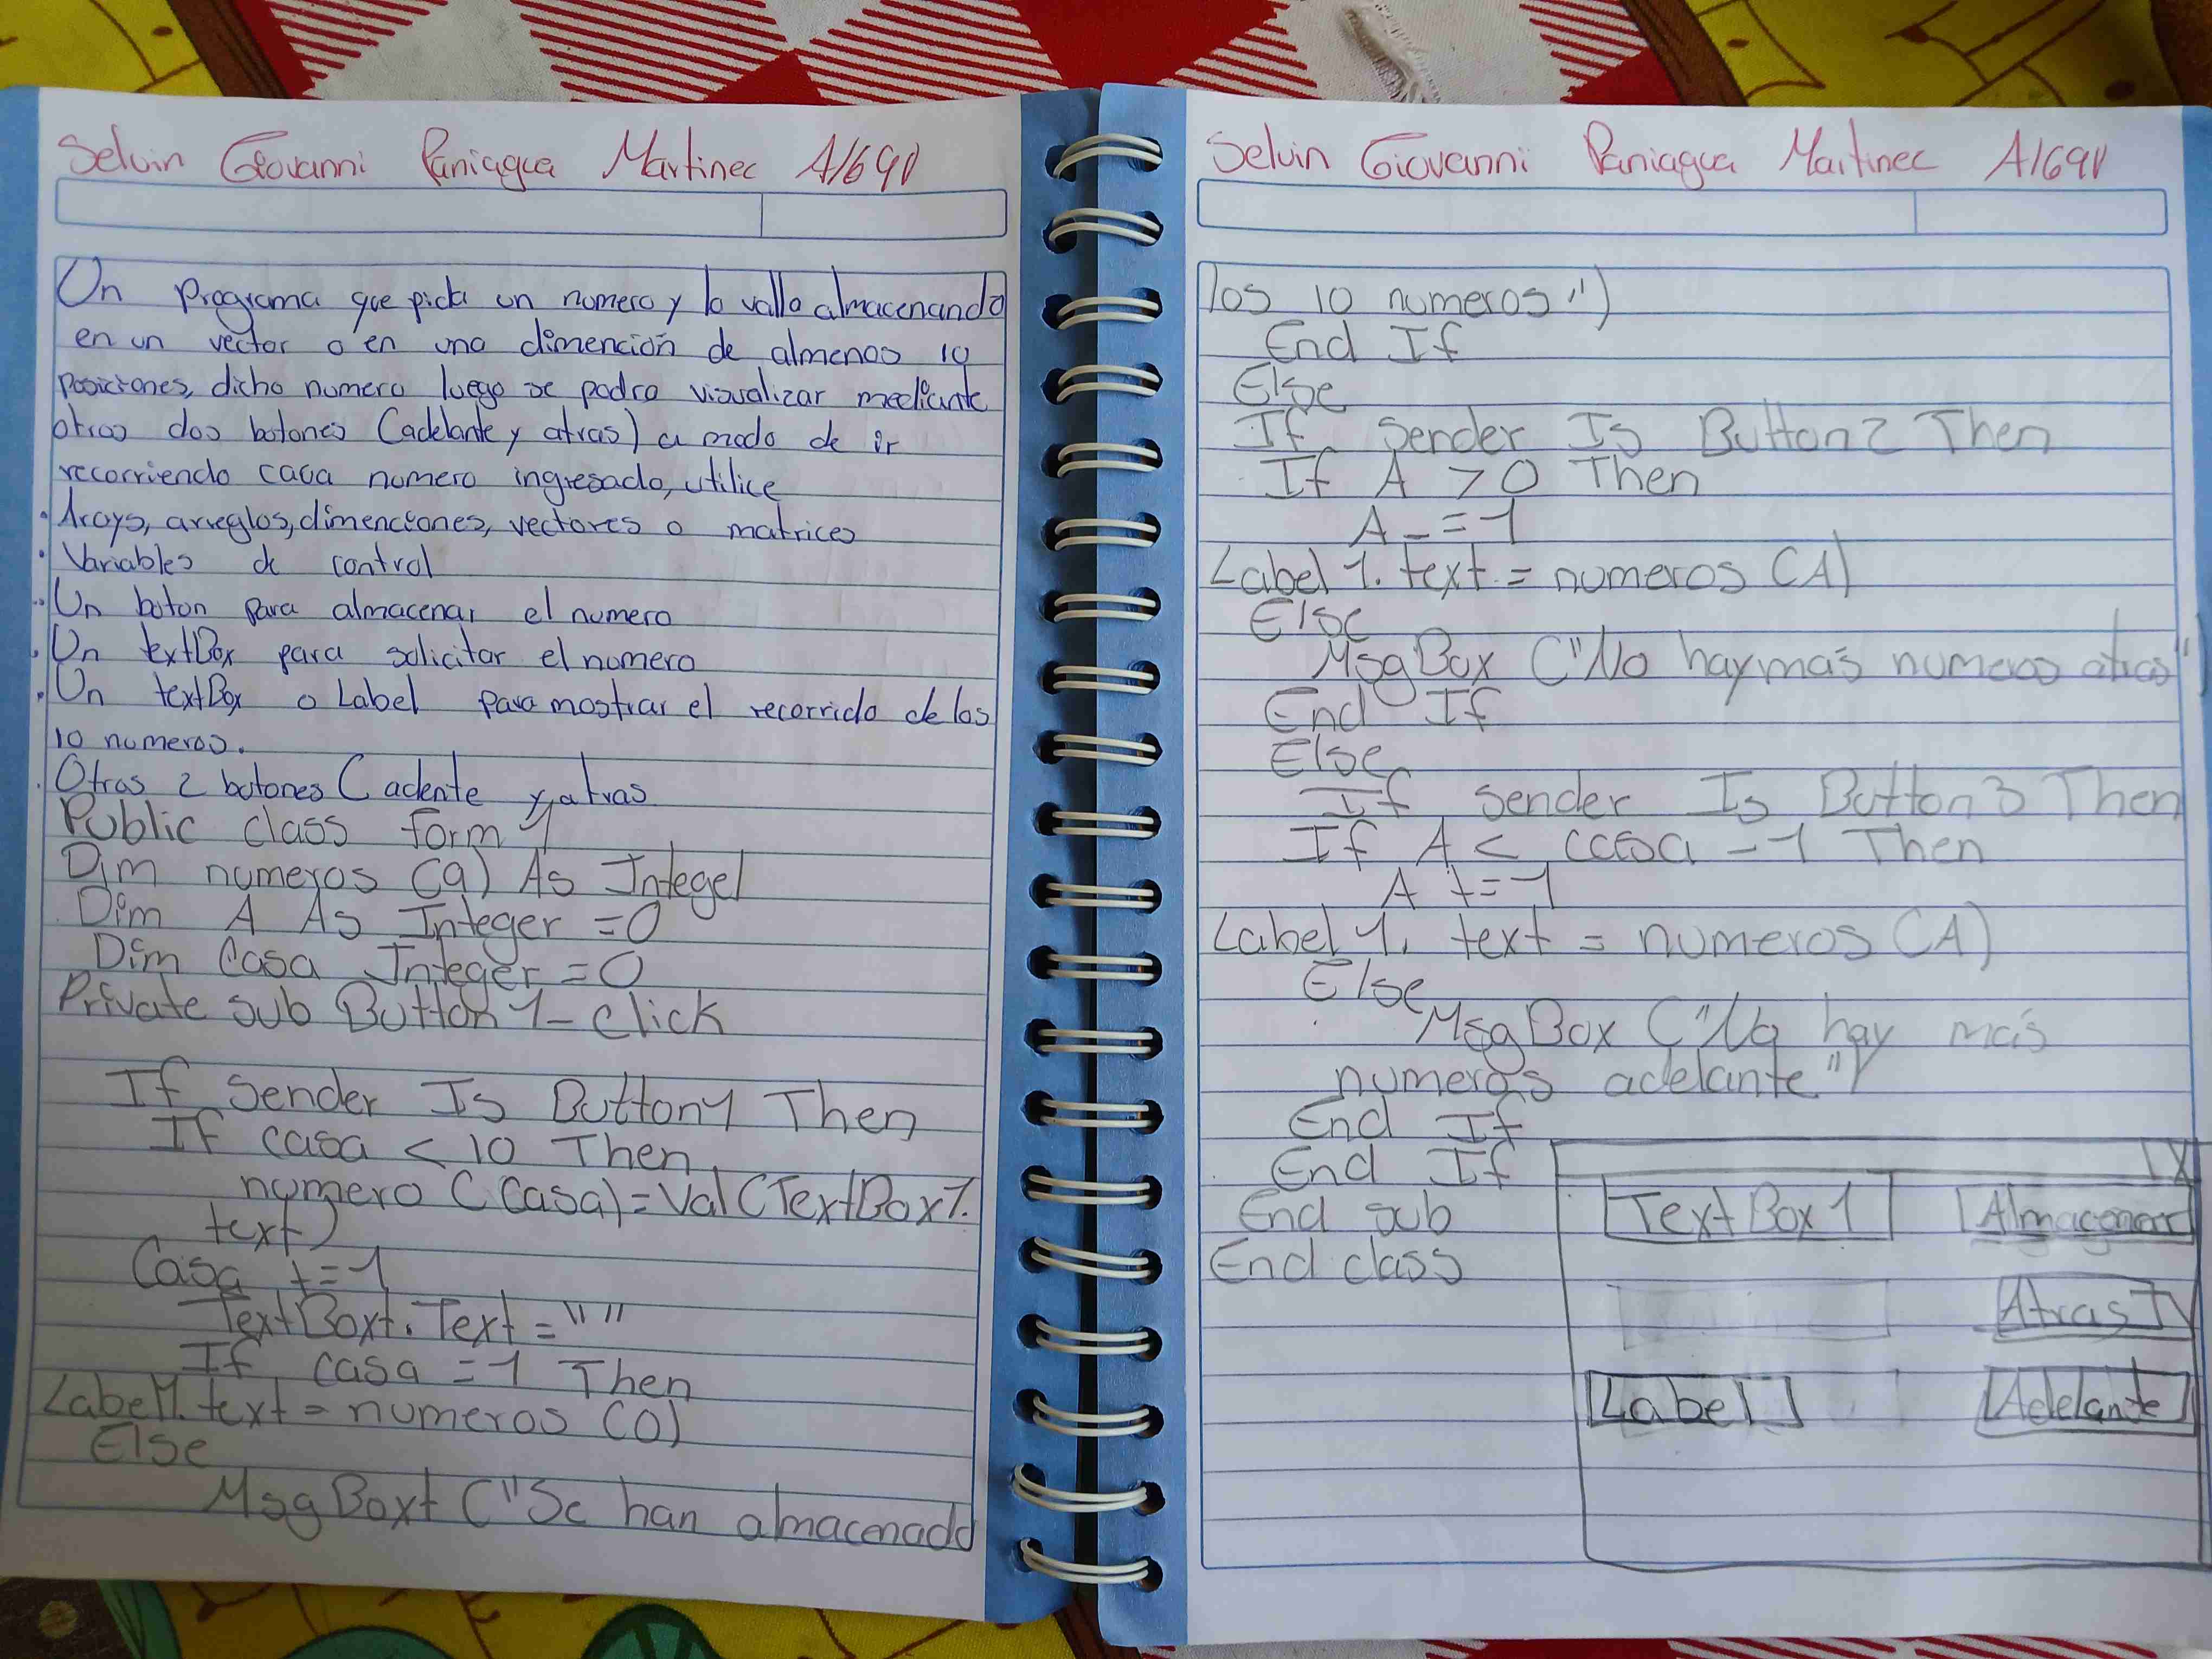 Selvin Geovanni Paniagua Martinec A/1691
Un programa que pida un numero y lo valla almacenando
en un vector o en una dimención de almenos 10
posiciones, dicho numero luego se podra vizualizar mediante
otros dos botones (adelante y atras) a modo de ir
recorriendo cada numero ingresado, utilice
• Arays, arreglos, dimenciones, vectores o matrices
• Variables de control
• Un boton para almacenar el numero
• Un textBox para solicitar el numero
• Un textBox o Label para mostrar el recorrido de los
10 numeros.
• Otros 2 botones ( adente y atras
Public class form 1
Dim numeros (9) As Integel
Dim A As Integer =0
Dim Casa Integer =0
Private sub Button 1_Click
If Sender Is Button1 Then
If casa < 10 Then
numero (Casa) = Val (TextBox1.
text)
Casa +=1
TextBoxt. Text = " "
If casa =1 Then
Label1. text = numeros (0)
Else
MsgBoxt ("Se han almacenado
Selvin Giovanni Paniagua Martinec A/1691
los 10 numeros")
End If
Else
If Sender Is Button2 Then
If A > 0 Then
A -=1
Label 1. text = numeros (A)
Else
MsgBox ("No hay más numeros atras")
End If
Else
If sender Is Button3 Then
If A < casa -1 Then
A +=1
Label 1. text = numeros (A)
Else
MsgBox ("No hay más
numeros adelante")
End If
End If
End sub
End class
X
TextBox1 Almacenar
Atras
Label1 Adelante